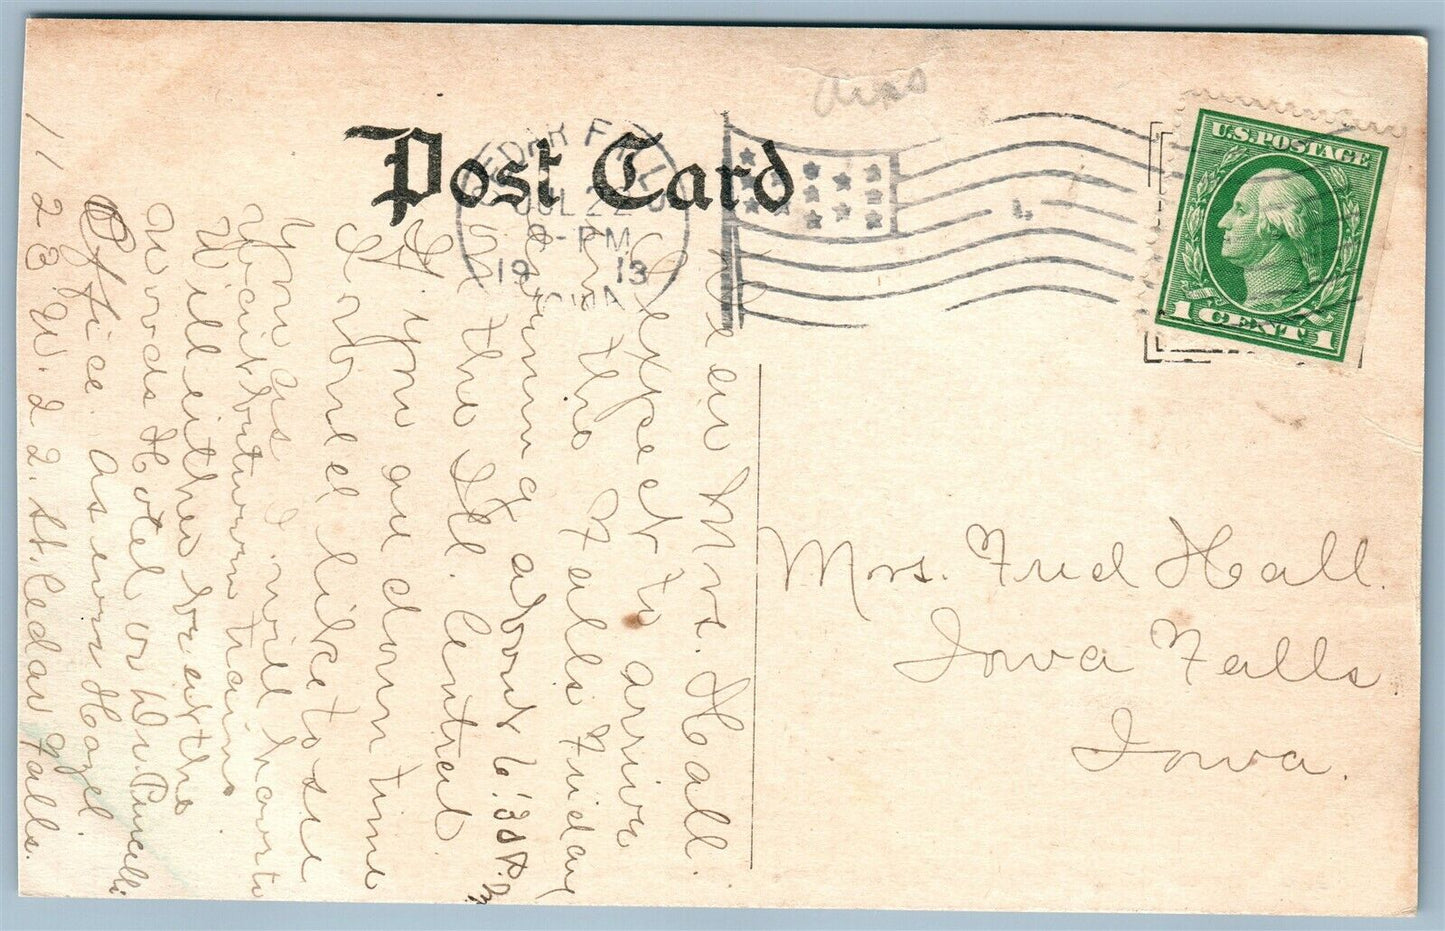 Post Card
CEDAR FALLS
JUL 22
8-PM
1913
IOWA
U.S. POSTAGE
1 CENT 1
Mrs. Fred Hall.
Iowa Falls
Iowa.
Dear Mrs. Hall.
I expect to arrive
in the Falls Friday
evening about 6:30 P.M.
on the Ill. Central
If you are down time
I would like to see
you as I will have to
wait between trains
Will either be at the
Woods Hotel or Dr.
Office. As ever Hazel
1123 W. 22. St. Cedar Falls.